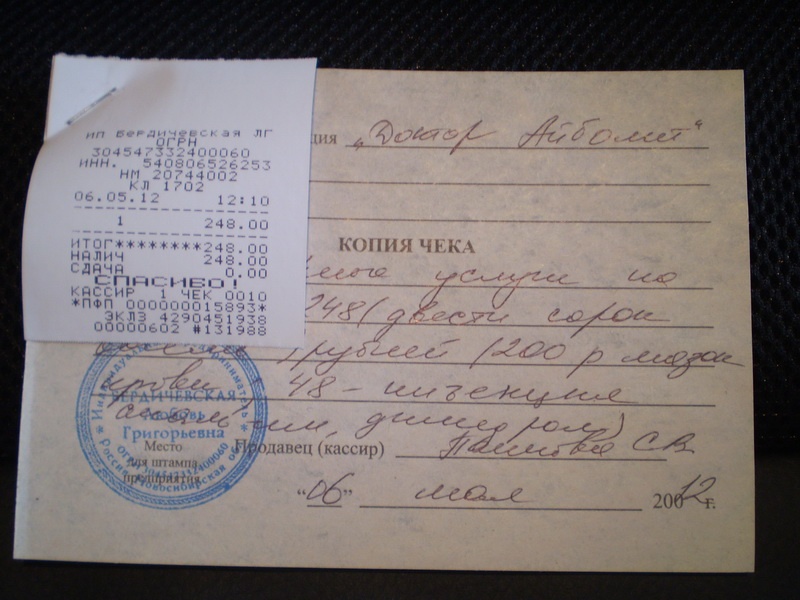 ИП Бердичевская ЛГ
ОГРН
304547332400060
ИНН. 540806526253
НМ 20744002
КЛ 1702
06.05.12 12:10
1 248.00
ИТОГ********248.00
НАЛИЧ 248.00
СДАЧА 0.00
СПАСИБО!
КАССИР 1 ЧЕК 0010
*ПФП 000000015893*
ЭКЛЗ 4290451938
00000602 #131988
ция „Доктор Айболит"
КОПИЯ ЧЕКА
услуги на
248 (двести сорок
восемь) рублей (200 р мазок
крови, 48 – инъекция
димедрол)
Продавец (кассир) С.В.
"06" мая 2012 г.
Индивидуальный предприниматель
БЕРДИЧЕВСКАЯ
Любовь
Григорьевна
ОГРН 304547332400060
Россия Новосибирская обл
Место
для штампа
предприятия